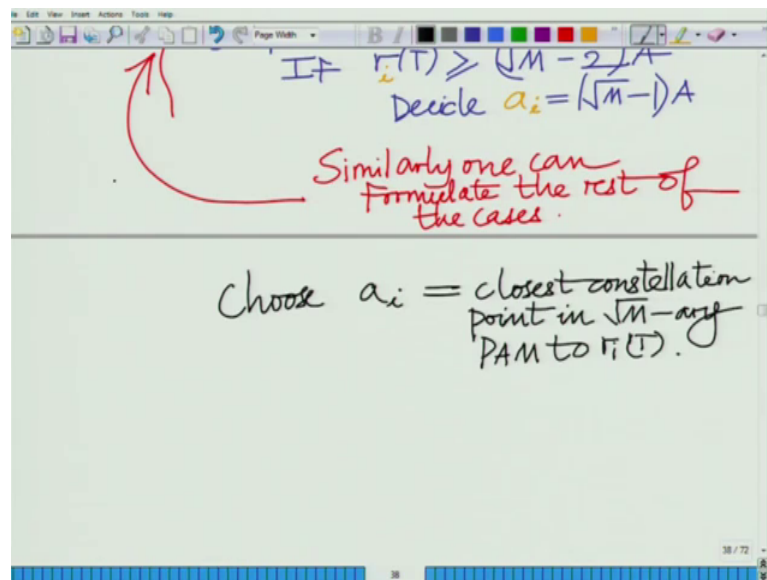 File Edit View Insert Actions Tools Help
Page Width
If r_i(T) ≥ (√M - 2)A
Decide a_i = (√M - 1)A
Similarly one can
formulate the rest of
the cases.
Choose a_i = closest constellation
point in √M-ary
PAM to r_i(T).
38 / 72
38